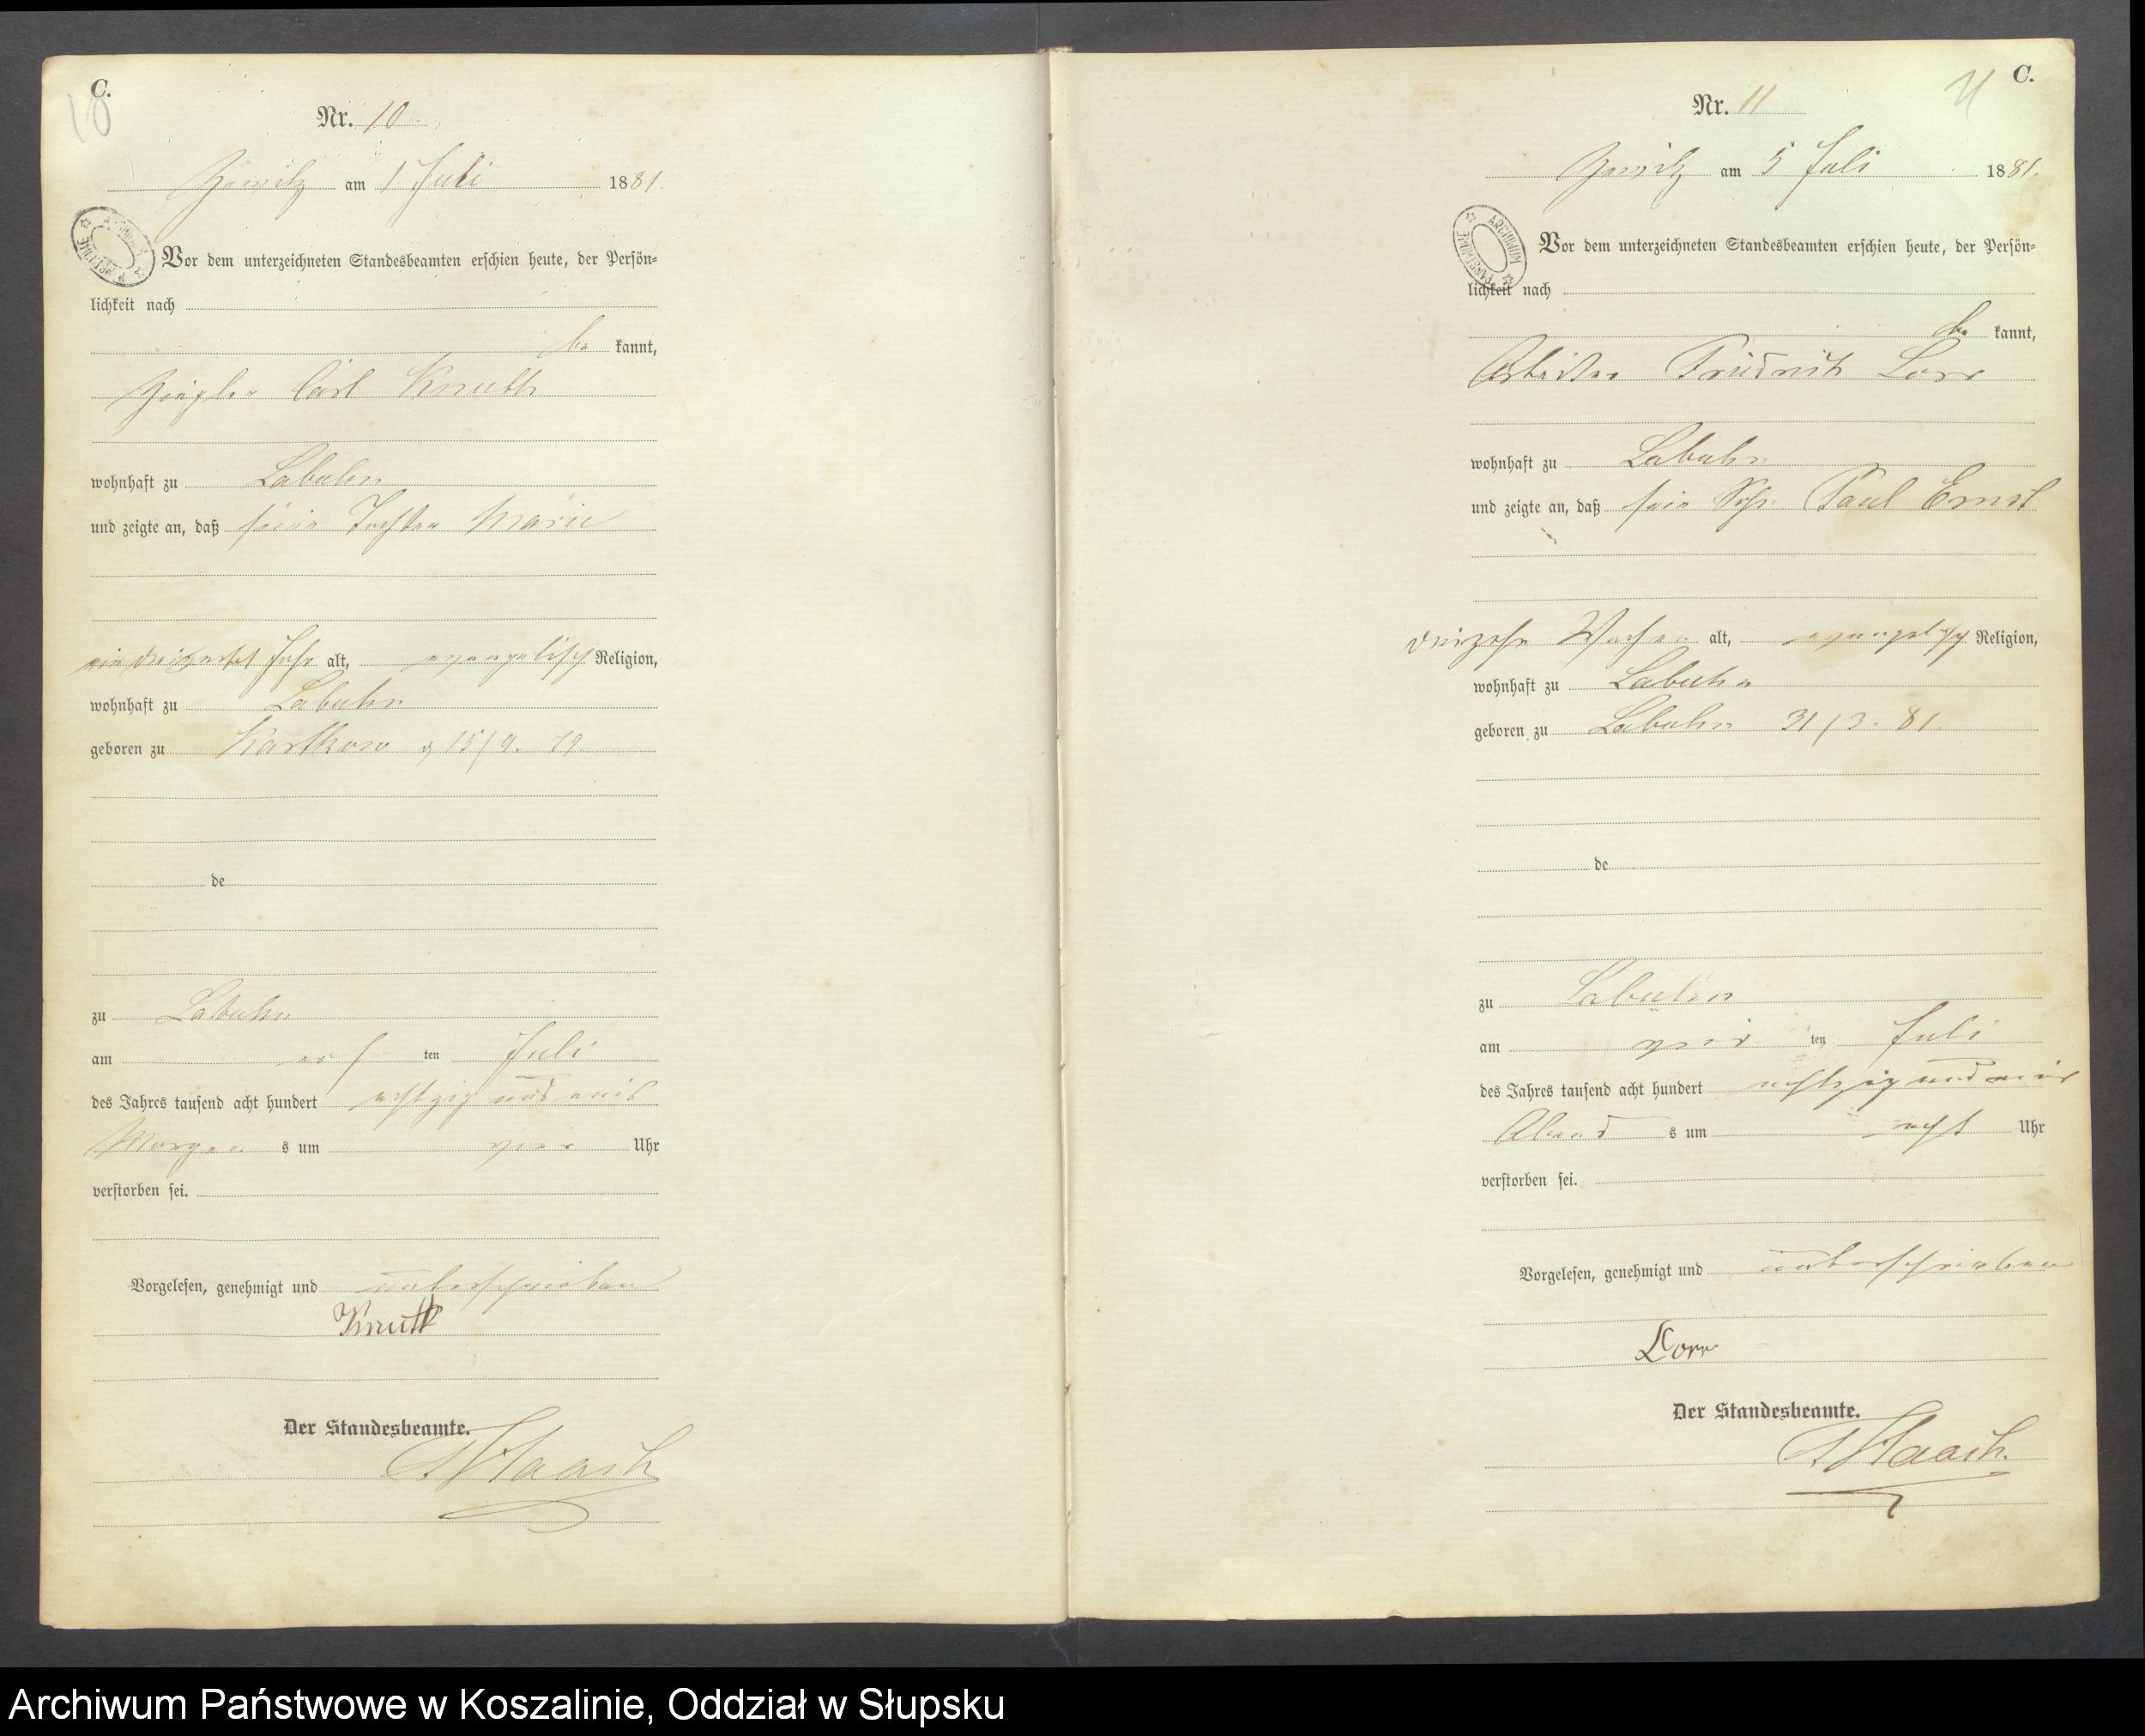 C.
10
Nr. 10
Zewitz am 1 Juli 1881.
Vor dem unterzeichneten Standesbeamten erschien heute, der Persön=
lichkeit nach
be kannt,
Ziegler Carl Knuth
wohnhaft zu Labuhn
und zeigte an, daß seine Tochter Marie
ein dreiviertel Jahr alt, evangelisch Religion,
wohnhaft zu Labuhn
geboren zu 15/9. 79
de
zu Labuhn
am ten Juli
des Jahres tausend acht hundert achtzig und eins
Morgen s um vier Uhr
verstorben sei.
Vorgelesen, genehmigt und unterschrieben
Knuth
Der Standesbeamte.
Haack
C.
11
Nr. 11
Zewitz am 5 Juli 1881.
ARCHIWUM PAŃSTWOWE
Vor dem unterzeichneten Standesbeamten erschien heute, der Persön=
lichkeit nach
be kannt,
Arbeiter Friedrich Lorr
wohnhaft zu Labuhn
und zeigte an, daß sein Sohn Paul Ernst
dreizehn Wochen alt, evangelisch Religion,
wohnhaft zu Labuhn
geboren zu Labuhn 31/3. 81.
de
zu Labuhn
am vier ten Juli
des Jahres tausend acht hundert achtzig und eins
Abend s um acht Uhr
verstorben sei.
Vorgelesen, genehmigt und unterschrieben
Lorr
Der Standesbeamte.
Haack.
Archiwum Państwowe w Koszalinie, Oddział w Słupsku